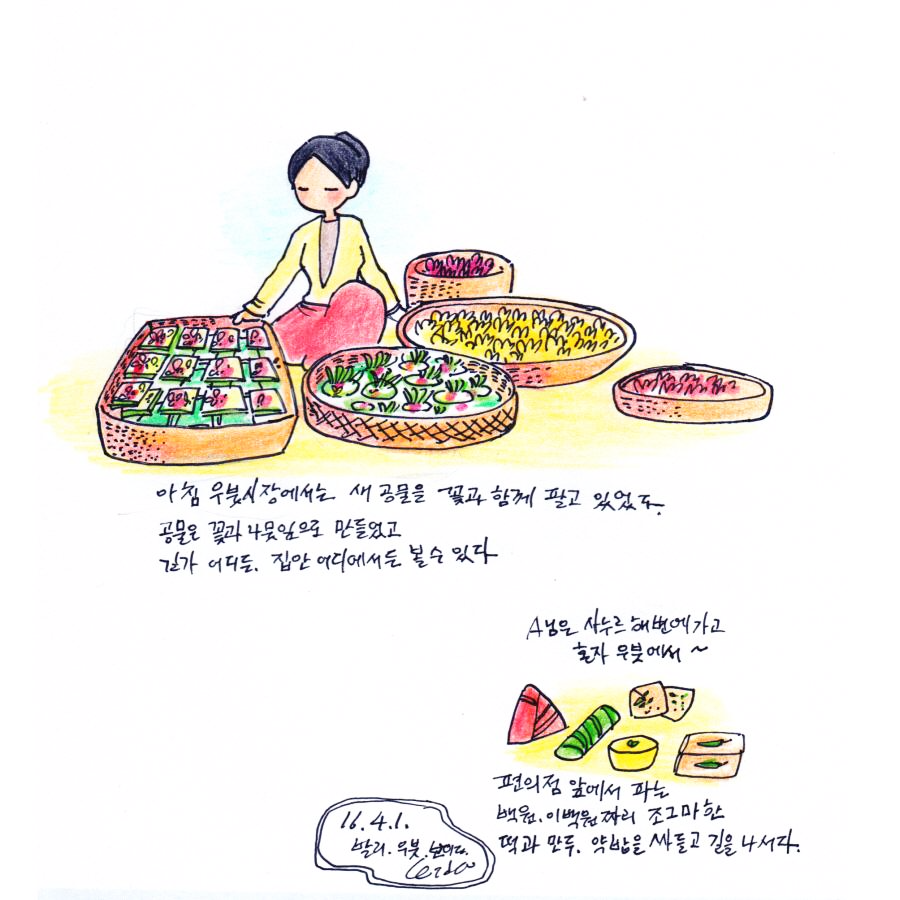 아침 우붓시장에서는 새 공물을 꽃과 함께 팔고 있었다.
공물은 꽃과 나뭇잎으로 만들었고
길가 어디든, 집안 어디에서든 볼 수 있다
A님은 사누르 해변에 가고
혼자 우붓에서 ~
편의점 앞에서 파는
백원, 이백원짜리 조그마한
떡과 만두, 약밥을 싸들고 길을 나서다.
16.4.1.
발리. 우붓.